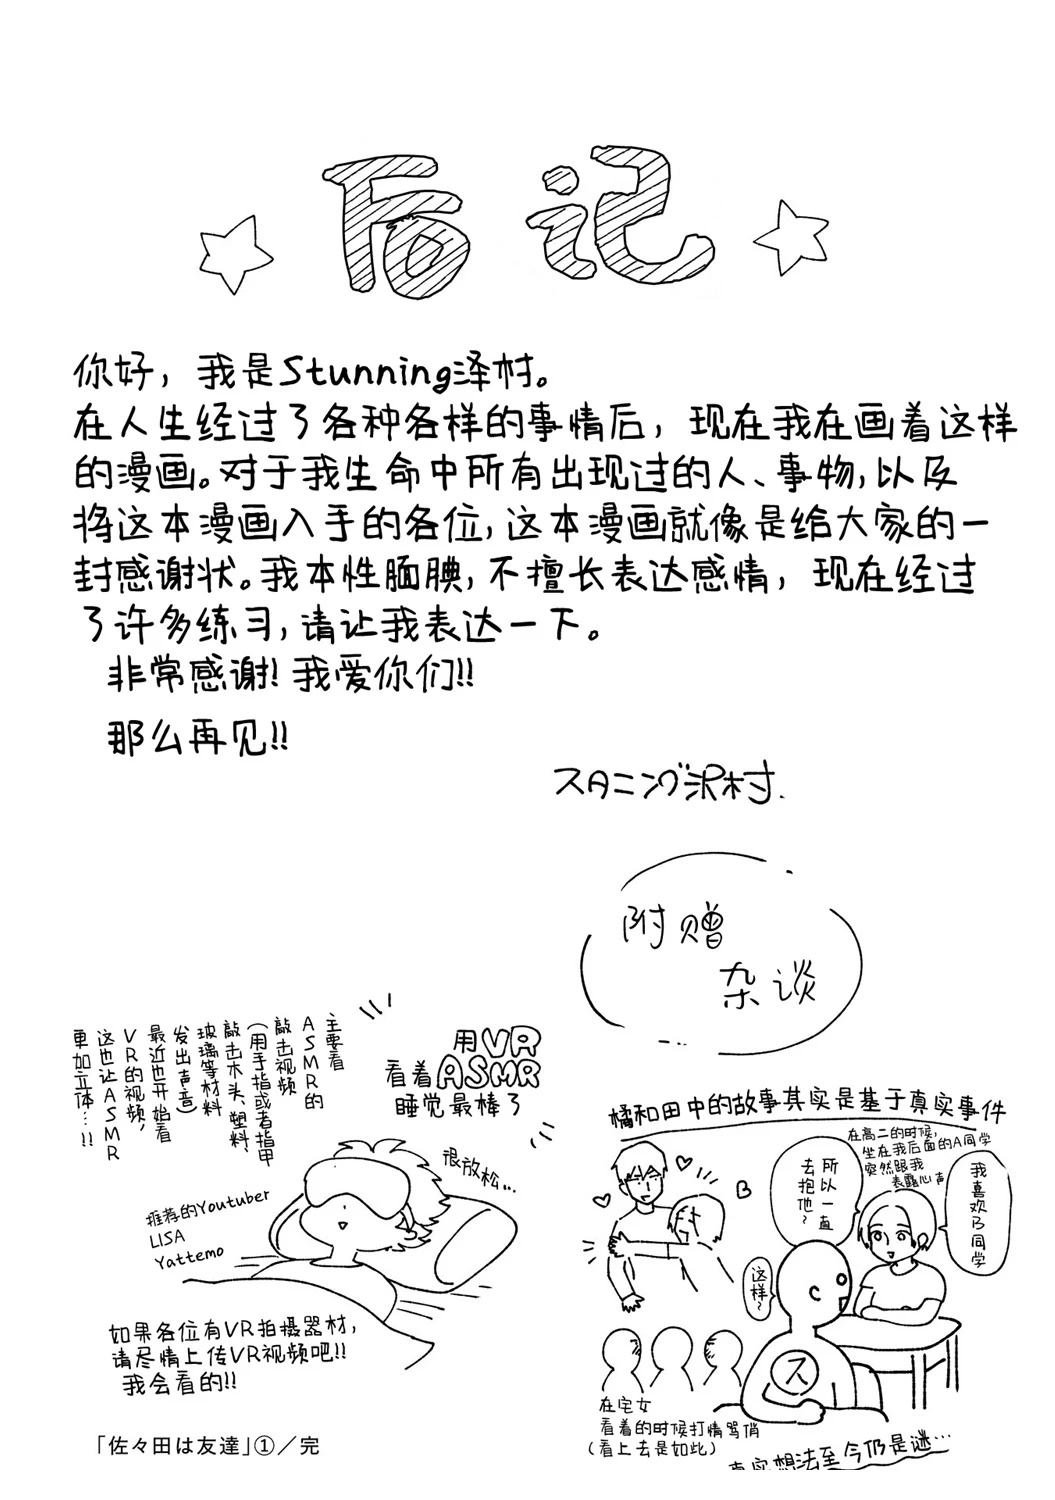 后记
你好，我是Stunning泽村。
在人生经过了各种各样的事情后，现在我在画着这样
的漫画。对于我生命中所有出现过的人、事物，以及
将这本漫画入手的各位，这本漫画就像是给大家的一
封感谢状。我本性腼腆，不擅长表达感情，现在经过
了许多练习，请让我表达一下。
非常感谢！我爱你们！！
那么再见！！
スタニング沢村.
附赠
杂谈
用VR
看着ASMR
睡觉最棒了
主要看
ASMR的
敲击视频
（用手指或者指甲
敲击木头、塑料、
玻璃等材料
发出声音）
最近也开始看
VR的视频，
这也让ASMR
更加立体…！！
很放松…
推荐的Youtuber
LISA
Yattemo
如果各位有VR拍摄器材，
请尽情上传VR视频吧！！
我会看的！！
橘和田中的故事其实是基于真实事件
在高二的时候，
坐在我后面的A同学
突然跟我
表露心声
我喜欢
B同学
所以一直
去抱他~
这样~
B
ス
在宅女
看着的时候打情骂俏
（看上去是如此）
真实想法至今仍是谜…
「佐々田は友達」①／完